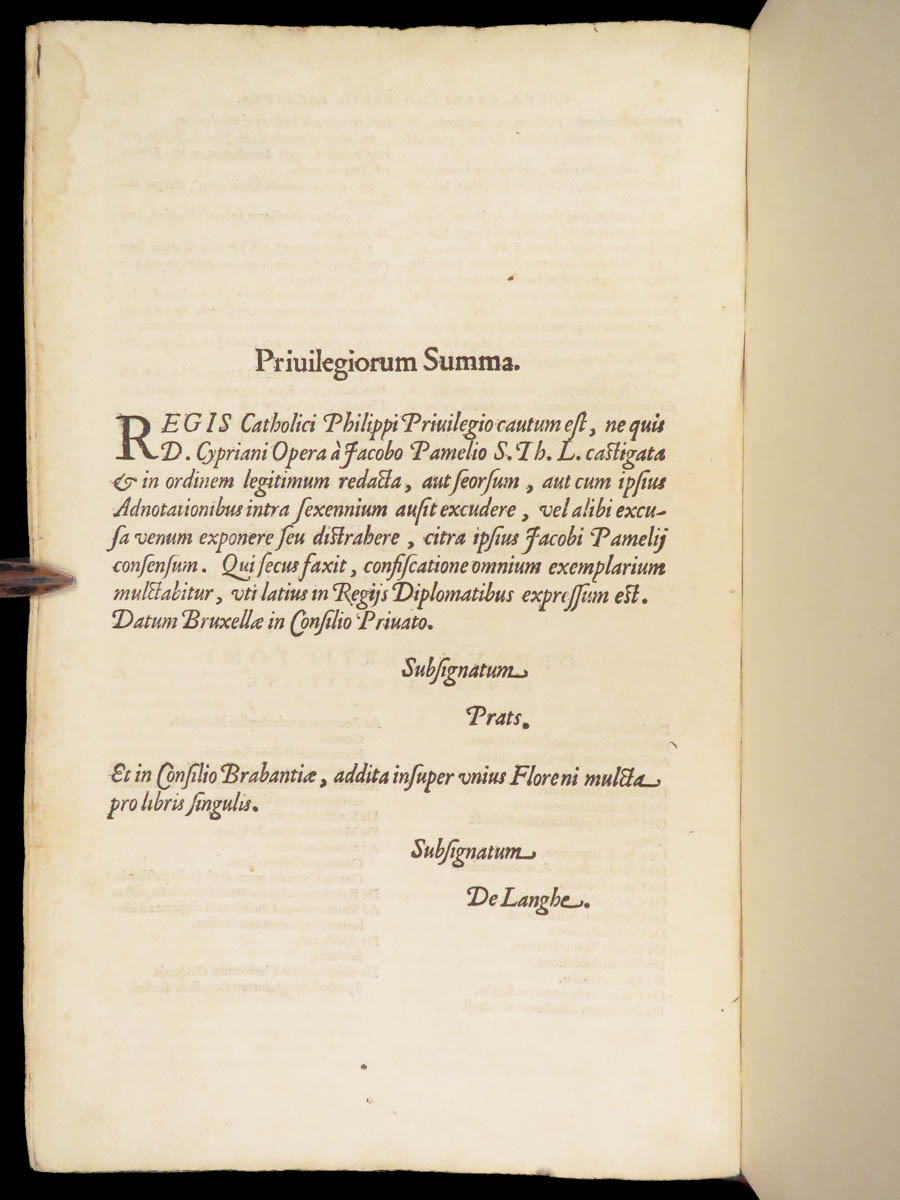 Priuilegiorum Summa.
REGIS Catholici Philippi Priuilegio cautum est, ne quis
D. Cypriani Opera à Jacobo Pamelio S. Th. L. castigata
& in ordinem legitimum redacta, aut seorsum, aut cum ipsius
Adnotationibus intra sexennium ausit excudere, vel alibi excu-
sa venum exponere seu distrahere, citra ipsius Jacobi Pamelij
consensum. Qui secus faxit, confiscatione omnium exemplarium
mulctabitur, vti latius in Regijs Diplomatibus expressum est.
Datum Bruxellæ in Consilio Priuato.
Subsignatum
Prats.
Et in Consilio Brabantiæ, addita insuper vnius Floreni mulcta
pro libris singulis.
Subsignatum
De Langhe.